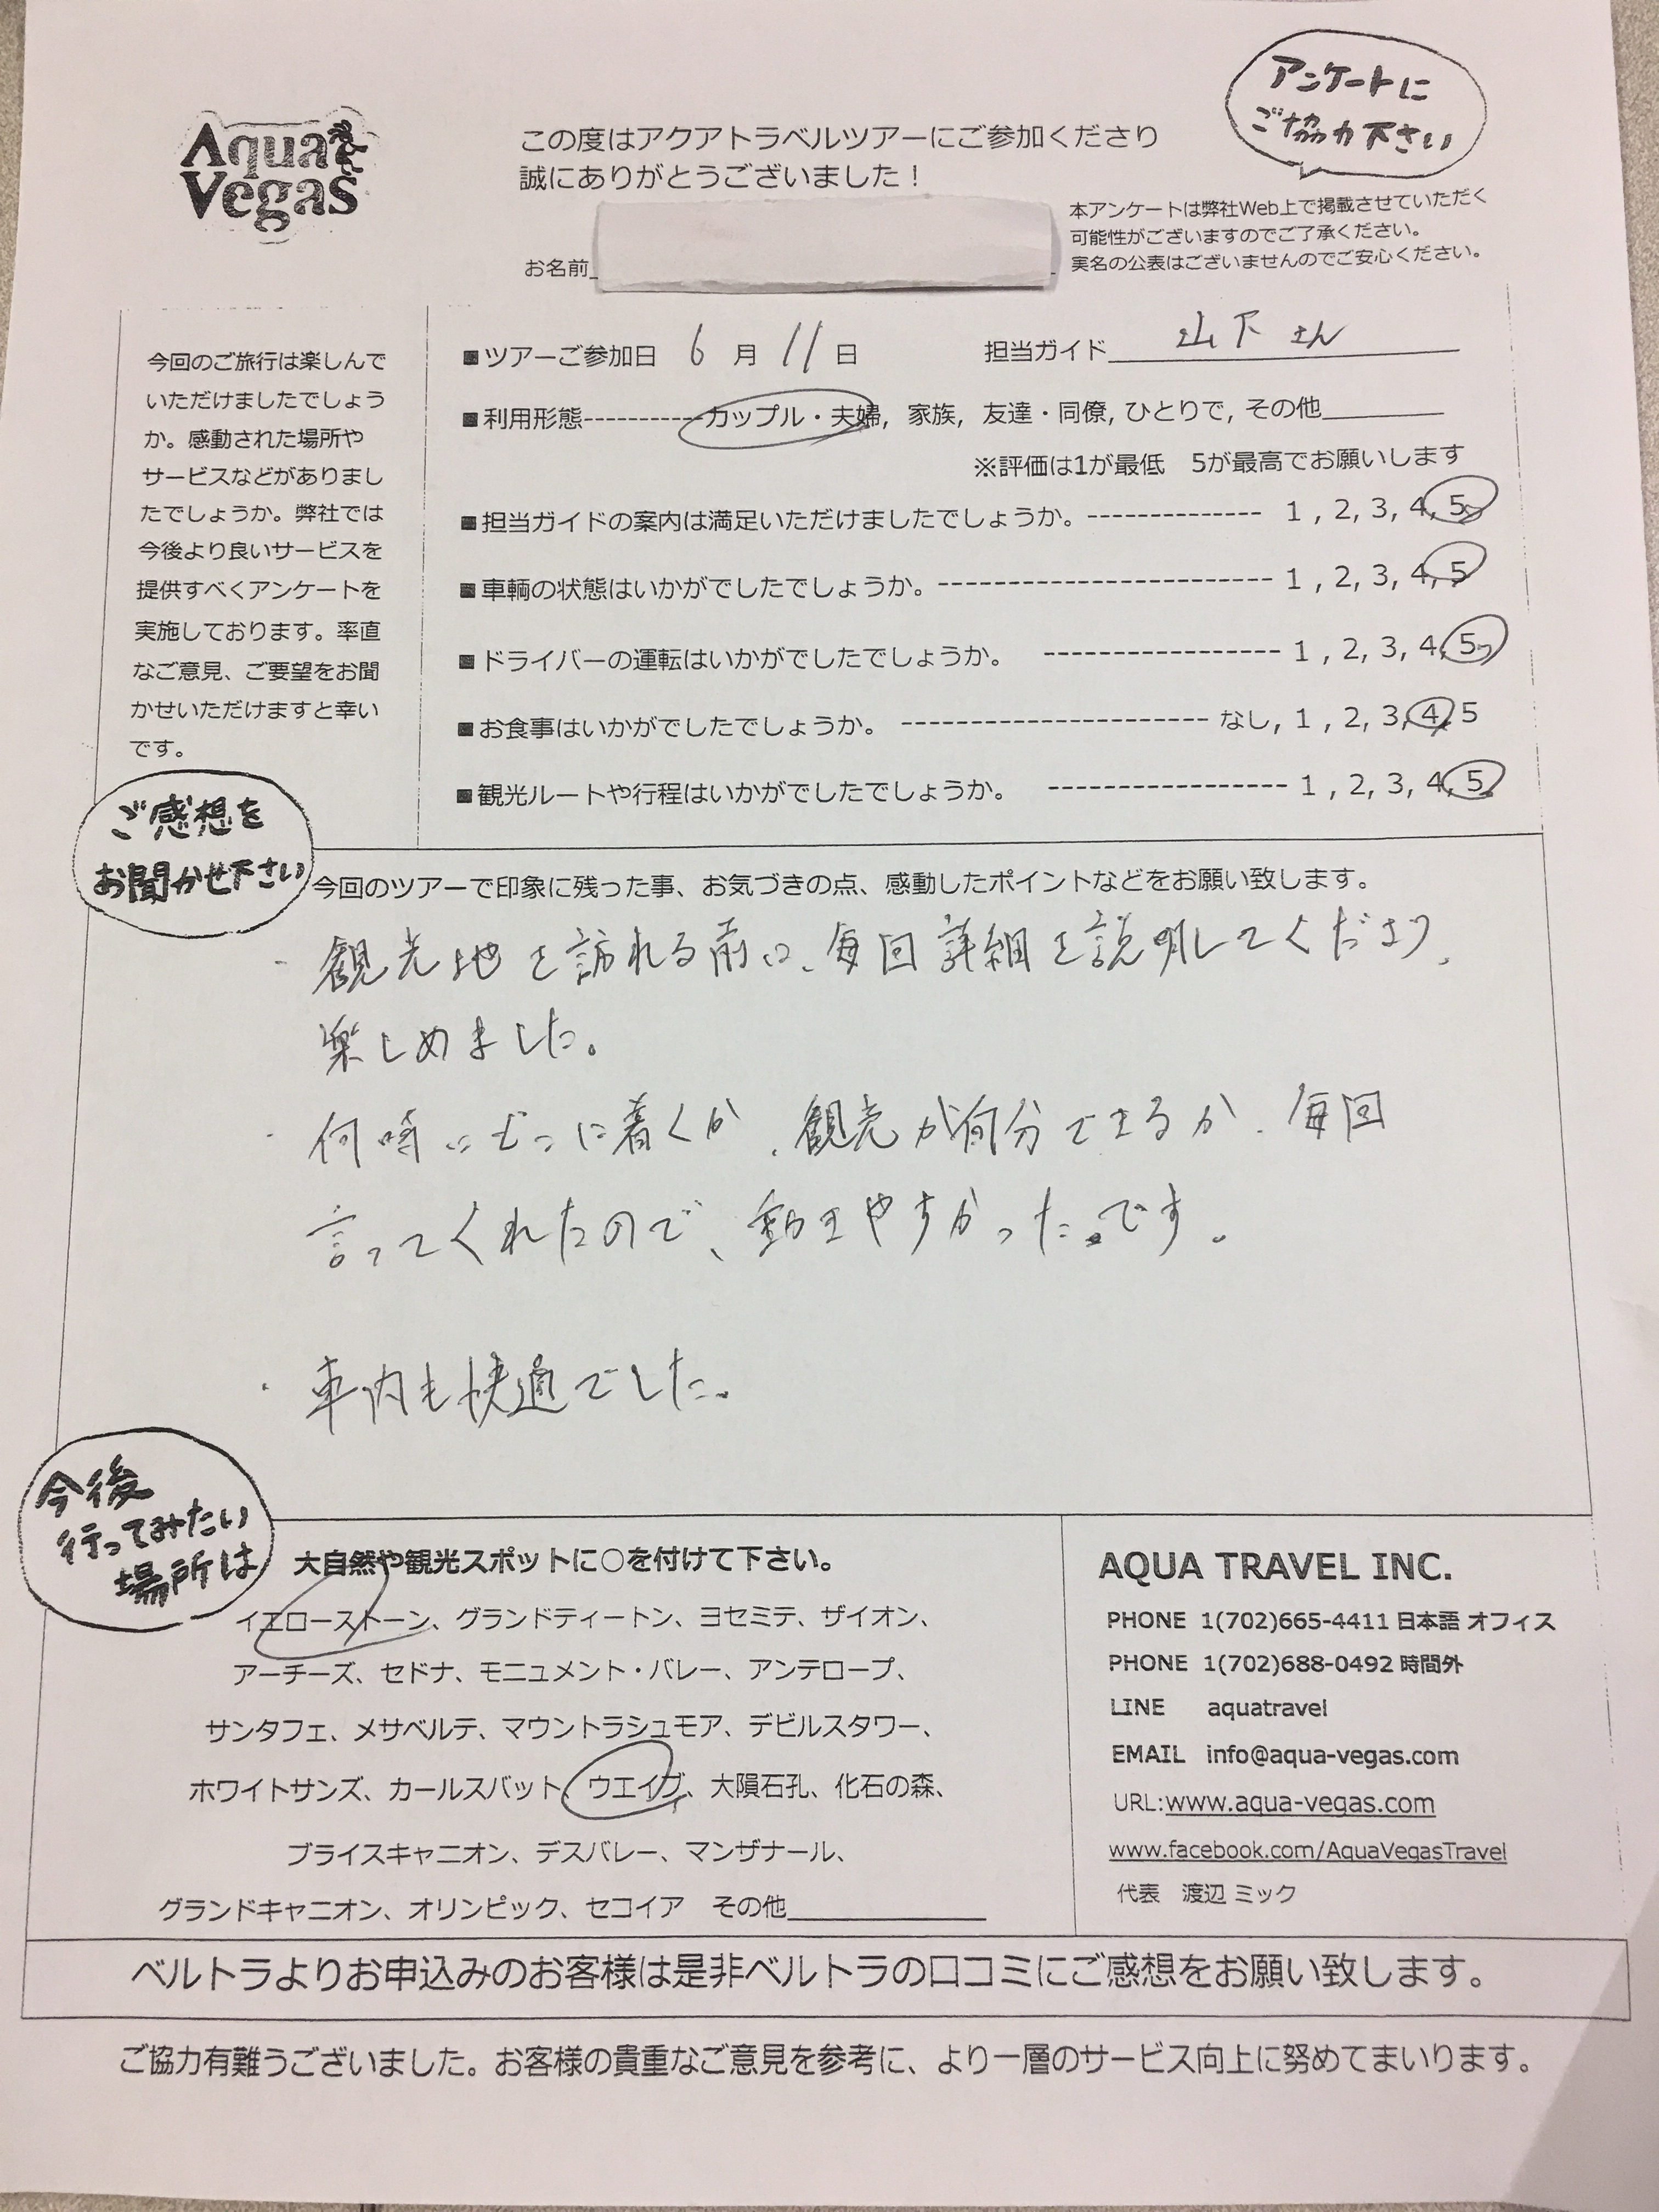 アンケートに
ご協力下さい
Aqua
Vegas
この度はアクアトラベルツアーにご参加くださり
誠にありがとうございました!
本アンケートは弊社Web上で掲載させていただく
可能性がございますのでご了承ください。
実名の公表はございませんのでご安心ください。
お名前
今回のご旅行は楽しんで
いただけましたでしょう
か。感動された場所や
サービスなどがありまし
たでしょうか。弊社では
今後より良いサービスを
提供すべくアンケートを
実施しております。率直
なご意見、ご要望をお聞
かせいただけますと幸い
です。
■ツアーご参加日 6 月 11 日 担当ガイド 山下さん
■利用形態-----------カップル・夫婦, 家族, 友達・同僚, ひとりで, その他
※評価は1が最低 5が最高でお願いします
■担当ガイドの案内は満足いただけましたでしょうか。------------- 1 , 2, 3, 4, 5
■車輌の状態はいかがでしたでしょうか。------------------------- 1 , 2, 3, 4, 5
■ドライバーの運転はいかがでしたでしょうか。 ----------------- 1 , 2, 3, 4, 5
■お食事はいかがでしたでしょうか。 ----------------------- なし, 1 , 2, 3, 4, 5
■観光ルートや行程はいかがでしたでしょうか。 ----------------- 1 , 2, 3, 4, 5
ご感想を
お聞かせ下さい
今回のツアーで印象に残った事、お気づきの点、感動したポイントなどをお願い致します。
・観光地を訪れる前に、毎回詳細を説明してくださり、
楽しめました。
・何時にどこに着くか、観光が何分できるか、毎回
言ってくれたので、動きやすかったです。
・車内も快適でした。
今後
行ってみたい
場所は
大自然や観光スポットに○を付けて下さい。
イエローストーン、グランドティートン、ヨセミテ、ザイオン、
アーチーズ、セドナ、モニュメント・バレー、アンテロープ、
サンタフェ、メサベルテ、マウントラシュモア、デビルスタワー、
ホワイトサンズ、カールスバット、ウエイブ、大隕石孔、化石の森、
ブライスキャニオン、デスバレー、マンザナール、
グランドキャニオン、オリンピック、セコイア その他
AQUA TRAVEL INC.
PHONE 1(702)665-4411 日本語 オフィス
PHONE 1(702)688-0492 時間外
LINE aquatravel
EMAIL info@aqua-vegas.com
URL:www.aqua-vegas.com
www.facebook.com/AquaVegasTravel
代表 渡辺 ミック
ベルトラよりお申込みのお客様は是非ベルトラの口コミにご感想をお願い致します。
ご協力有難うございました。お客様の貴重なご意見を参考に、より一層のサービス向上に努めてまいります。